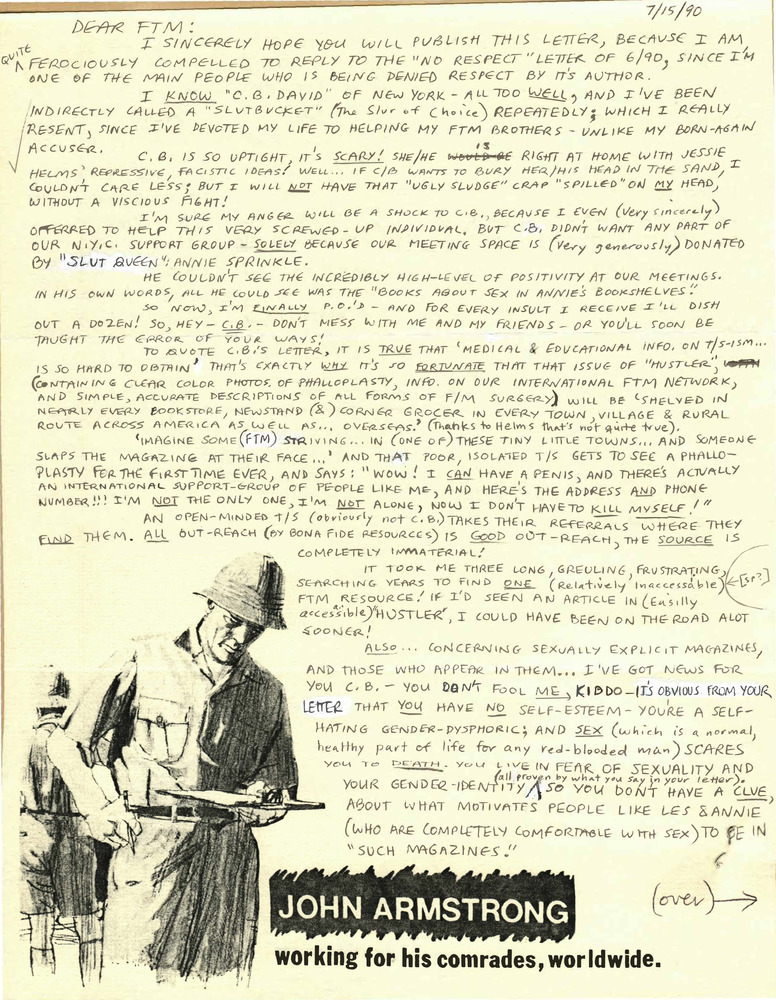 7/15/90
DEAR FTM:
I SINCERELY HOPE YOU WILL PUBLISH THIS LETTER, BECAUSE I AM
QUITE
FEROCIOUSLY COMPELLED TO REPLY TO THE "NO RESPECT" LETTER OF 6/90, SINCE I'M
ONE OF THE MAIN PEOPLE WHO IS BEING DENIED RESPECT BY IT'S AUTHOR.
I KNOW "C.B. DAVID" OF NEW YORK - ALL TOO WELL, AND I'VE BEEN
INDIRECTLY CALLED A "SLUTBUCKET" (The Slur of Choice) REPEATEDLY; WHICH I REALLY
RESENT, SINCE I'VE DEVOTED MY LIFE TO HELPING MY FTM BROTHERS - UNLIKE MY BORN-AGAIN
ACCUSER.
C.B. IS SO UPTIGHT, IT'S SCARY! SHE/HE IS RIGHT AT HOME WITH JESSIE
HELMS' REPRESSIVE, FACISTIC IDEAS! WELL... IF C/B WANTS TO BURY HER/HIS HEAD IN THE SAND, I
COULDN'T CARE LESS; BUT I WILL NOT HAVE THAT "UGLY SLUDGE" CRAP "SPILLED" ON MY HEAD,
WITHOUT A VISCIOUS FIGHT!
I'M SURE MY ANGER WILL BE A SHOCK TO C.B., BECAUSE I EVEN (Very sincerely)
OFFERRED TO HELP THIS VERY SCREWED-UP INDIVIDUAL. BUT C.B. DIDN'T WANT ANY PART OF
OUR N.Y.C. SUPPORT GROUP - SOLELY BECAUSE OUR MEETING SPACE IS (Very generously) DONATED
BY "SLUT QUEEN"; ANNIE SPRINKLE.
HE COULDN'T SEE THE INCREDIBLY HIGH-LEVEL OF POSITIVITY AT OUR MEETINGS.
IN HIS OWN WORDS, ALL HE COULD SEE WAS THE "BOOKS ABOUT SEX IN ANNIE'S BOOKSHELVES".
SO NOW, I'M FINALLY P.O.'D - AND FOR EVERY INSULT I RECEIVE I'LL DISH
OUT A DOZEN! SO, HEY - C.B. - DON'T MESS WITH ME AND MY FRIENDS - OR YOU'LL SOON BE
TAUGHT THE ERROR OF YOUR WAYS!
TO QUOTE C.B.'S LETTER, IT IS TRUE THAT 'MEDICAL & EDUCATIONAL INFO. ON T/S-ISM...
IS SO HARD TO OBTAIN' THAT'S EXACTLY WHY IT'S SO FORTUNATE THAT THAT ISSUE OF "HUSTLER",
(CONTAINING CLEAR COLOR PHOTOS. OF PHALLOPLASTY, INFO. ON OUR INTERNATIONAL FTM NETWORK,
AND SIMPLE, ACCURATE DESCRIPTIONS OF ALL FORMS OF F/M SURGERY) WILL BE 'SHELVED IN
NEARLY EVERY BOOKSTORE, NEWSTAND (&) CORNER GROCER IN EVERY TOWN, VILLAGE & RURAL
ROUTE ACROSS AMERICA AS WELL AS... OVERSEAS.' (Thanks to Helms that's not quite true).
'IMAGINE SOME (FTM) STRIVING... IN (ONE OF) THESE TINY LITTLE TOWNS... AND SOMEONE
SLAPS THE MAGAZINE AT THEIR FACE...' AND THAT POOR, ISOLATED T/S GETS TO SEE A PHALLO-
PLASTY FOR THE FIRST TIME EVER, AND SAYS: "WOW! I CAN HAVE A PENIS, AND THERE'S ACTUALLY
AN INTERNATIONAL SUPPORT-GROUP OF PEOPLE LIKE ME, AND HERE'S THE ADDRESS AND PHONE
NUMBER!!! I'M NOT THE ONLY ONE, I'M NOT ALONE, NOW I DON'T HAVE TO KILL MYSELF!"
AN OPEN-MINDED T/S (obviously not C.B.) TAKES THEIR REFERRALS WHERE THEY
FIND THEM. ALL OUT-REACH (BY BONA FIDE RESOURCES) IS GOOD OUT-REACH, THE SOURCE IS
COMPLETELY IMMATERIAL!
IT TOOK ME THREE LONG, GREULING, FRUSTRATING,
SEARCHING YEARS TO FIND ONE (Relatively Inaccessable) ← [sp?]
FTM RESOURCE! IF I'D SEEN AN ARTICLE IN (Easilly
accessible) "HUSTLER", I COULD HAVE BEEN ON THE ROAD ALOT
SOONER!
ALSO... CONCERNING SEXUALLY EXPLICIT MAGAZINES,
AND THOSE WHO APPEAR IN THEM... I'VE GOT NEWS FOR
YOU C.B. - YOU DON'T FOOL ME, KIDDO - IT'S OBVIOUS FROM YOUR
LETTER THAT YOU HAVE NO SELF-ESTEEM - YOU'RE A SELF-
HATING GENDER-DYSPHORIC; AND SEX (which is a normal,
healthy part of life for any red-blooded man) SCARES
YOU TO DEATH. YOU LIVE IN FEAR OF SEXUALITY AND
(all proven by what you say in your letter).
YOUR GENDER-IDENTITY SO YOU DON'T HAVE A CLUE,
ABOUT WHAT MOTIVATES PEOPLE LIKE LES & ANNIE
(WHO ARE COMPLETELY COMFORTABLE WITH SEX) TO BE IN
"SUCH MAGAZINES."
(over) →
JOHN ARMSTRONG
working for his comrades, worldwide.